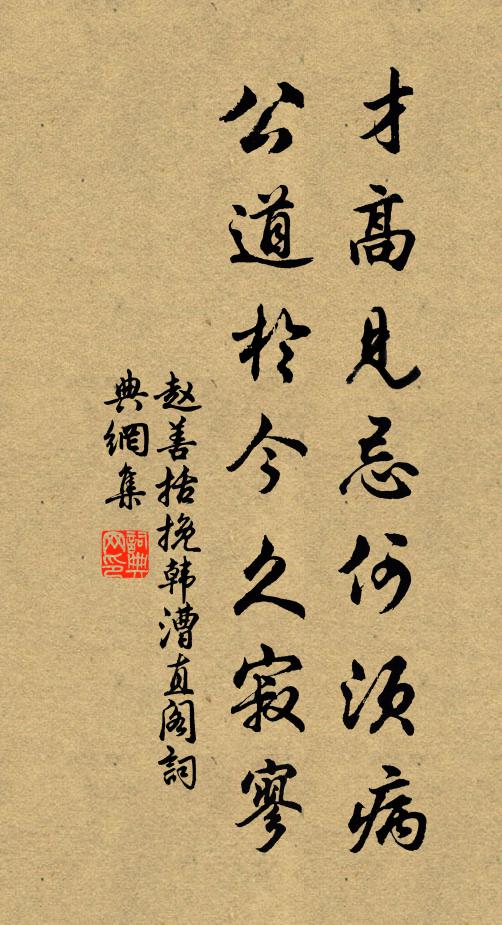 才高見忌何須病
公道於今久寂寥
赵善括挽韩漕直阁詞
典網集
詞典网印